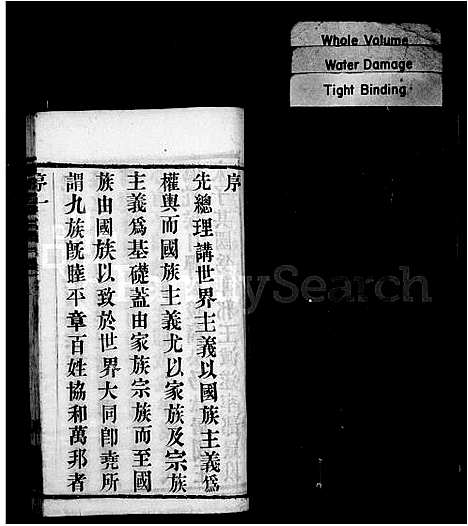 Whole Volume
Water Damage
Tight Binding
序
先總理講世界主義以國族主義爲
權輿而國族主義尤以家族及宗族
主義爲基礎蓋由家族宗族而至國
族由國族以致於世界大同卽堯所
謂九族旣睦平章百姓協和萬邦者
序一
FamilySearch